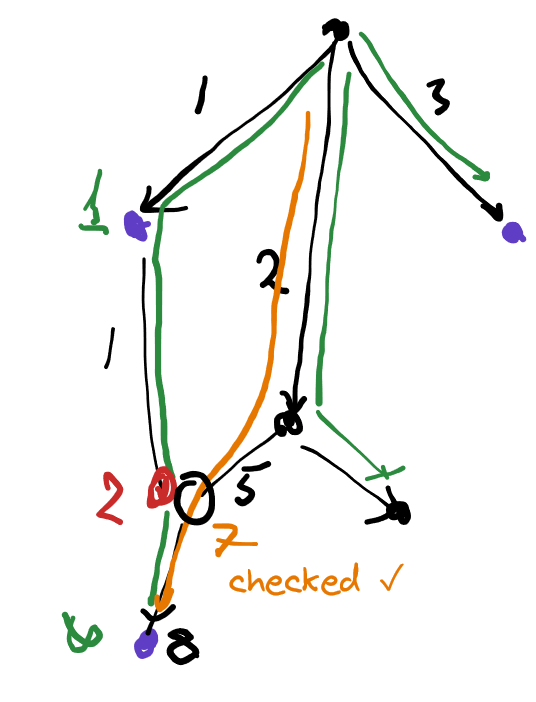 1
3
1
2
1
2
5
7
checked ✓
8
8